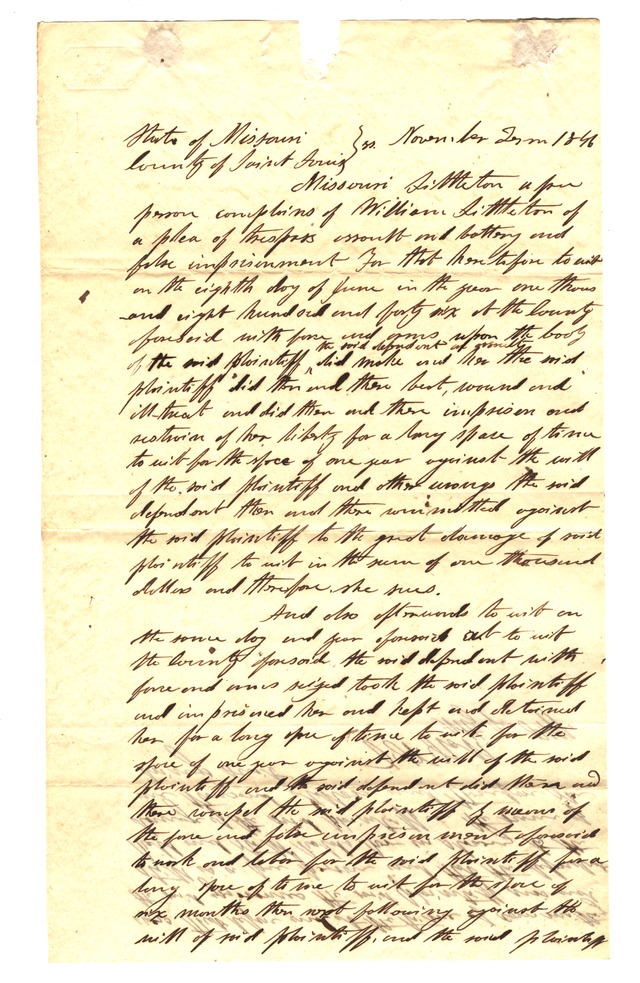 State of Missouri } ss. November Term 1846
County of Saint Louis
Missouri Littleton a free
person complains of William Littleton of
a plea of trespass assault and battery and
false imprisonment For that heretofore to wit
on the eighth day of June in the year one thous
and eight hundred and forty six at the County
aforesaid with force and arms upon the body
the said defendant an assault
of the said plaintiff did make and her the said
plaintiff did then and there beat, wound and
ill-treat and did then and there imprison and
restrain of her liberty for a long space of time
to wit for the space of one year against the will
of the said plaintiff and other wrongs the said
defendant then and there committed against
the said plaintiff to the great damage of said
plaintiff to wit in the sum of one thousand
dollars and therefore she sues.
And also afterwards to wit on
the same day and year aforesaid at to wit
the County aforesaid the said defendant with
force and arms seized took the said plaintiff
and imprisoned her and kept and detained
her for a long space of time to wit for the
space of one year against the will of the said
plaintiff and the said defendant did then and
there compel the said plaintiff by means of
the force and false imprisonment aforesaid
to work and labor for the said plaintiff for a
long space of time to wit for the space of
six months then next following against the
will of said plaintiff, and the said plaintiff